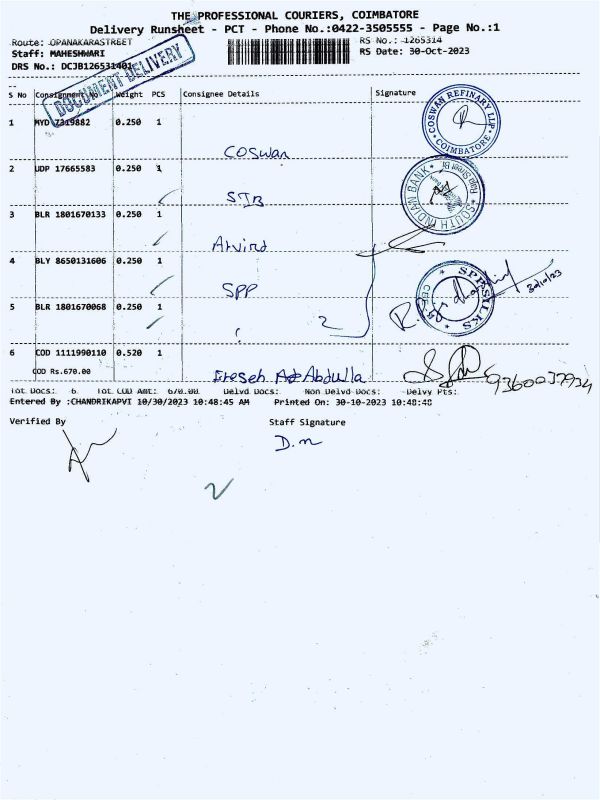 THE PROFESSIONAL COURIERS, COIMBATORE
Delivery Runsheet - PCT - Phone No.:0422-3505555 - Page No.:1
Route: OPANAKARASTREET RS No.: 1265314
Staff: MAHESHWARI RS Date: 30-Oct-2023
DRS No.: DCJB126531401
DOCUMENT DELIVERY
S No Consignment No. Weight PCS Consignee Details Signature
1 MYD 7319882 0.250 1
COSWAN REFINARY LLP
COIMBATORE
Coswan
2 UDP 17665583 0.250 1
SIB
SOUTH INDIAN BANK
3 BLR 1801670133 0.250 1
Arvind
4 BLY 8650131606 0.250 1
SPP
SPP SILKS
30/10/23
5 BLR 1801670068 0.250 1
2
6 COD 1111990110 0.520 1
COD Rs.670.00
Abdulla
9360037934
Tot Docs: 6 Tot COD Amt: 670.00 Delvd Docs: Non Delvd Docs: Delvy Pts:
Entered By :CHANDRIKAPVI 10/30/2023 10:48:45 AM Printed On: 30-10-2023 10:48:48
Verified By Staff Signature
D.m
2